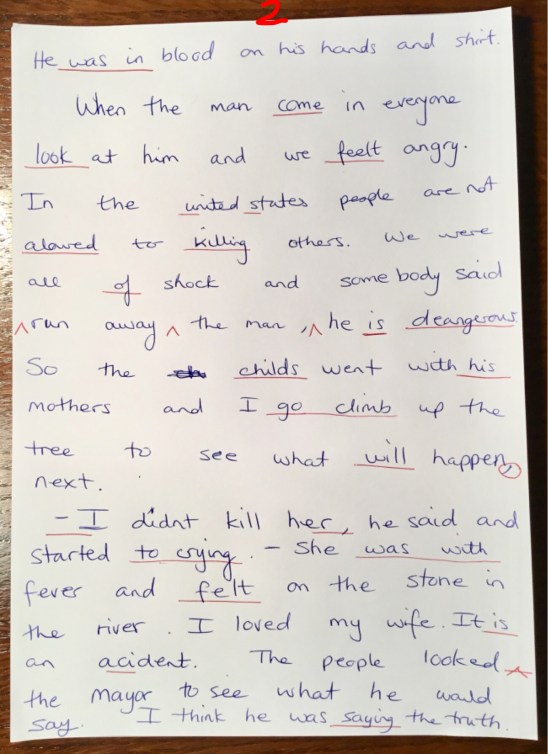 2
He was in blood on his hands and shirt.
When the man come in everyone
look at him and we feelt angry.
In the united states people are not
alowed to killing others. We were
all of shock and some body said
run away the man, he is deangerous
So the childs went with his
mothers and I go climb up the
tree to see what will happen,
next.
- I didnt kill her, he said and
started to crying. - She was with
fever and felt on the stone in
the river. I loved my wife. It is
an acident. The people looked
the mayor to see what he would
say. I think he was saying the truth.